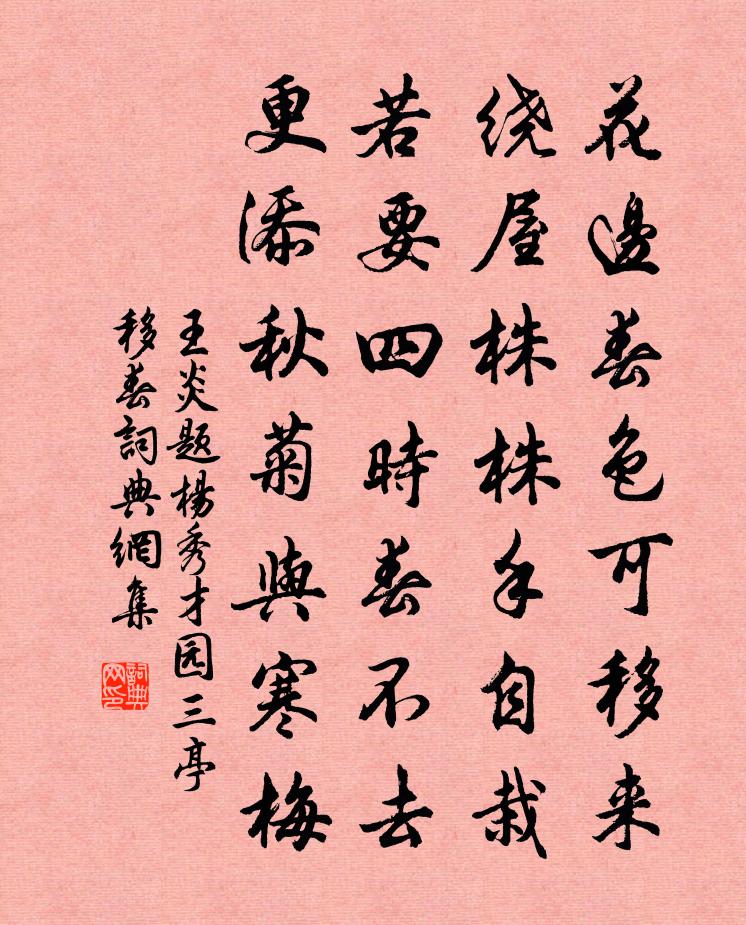 花邊春色可移来
绕屋株株手自栽
若要四時春不去
更添秋菊與寒梅
王炎题楊秀才园三亭
移春詞典網集
詞典网印